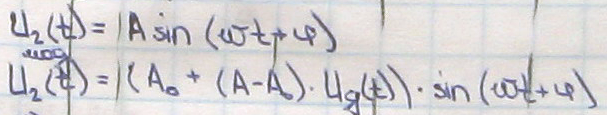 U₂(t) = A sin (ωt + φ)
U₂мод(t) = (A₀ + (A - A₀) · Ug(t)) · sin (ωt + φ)